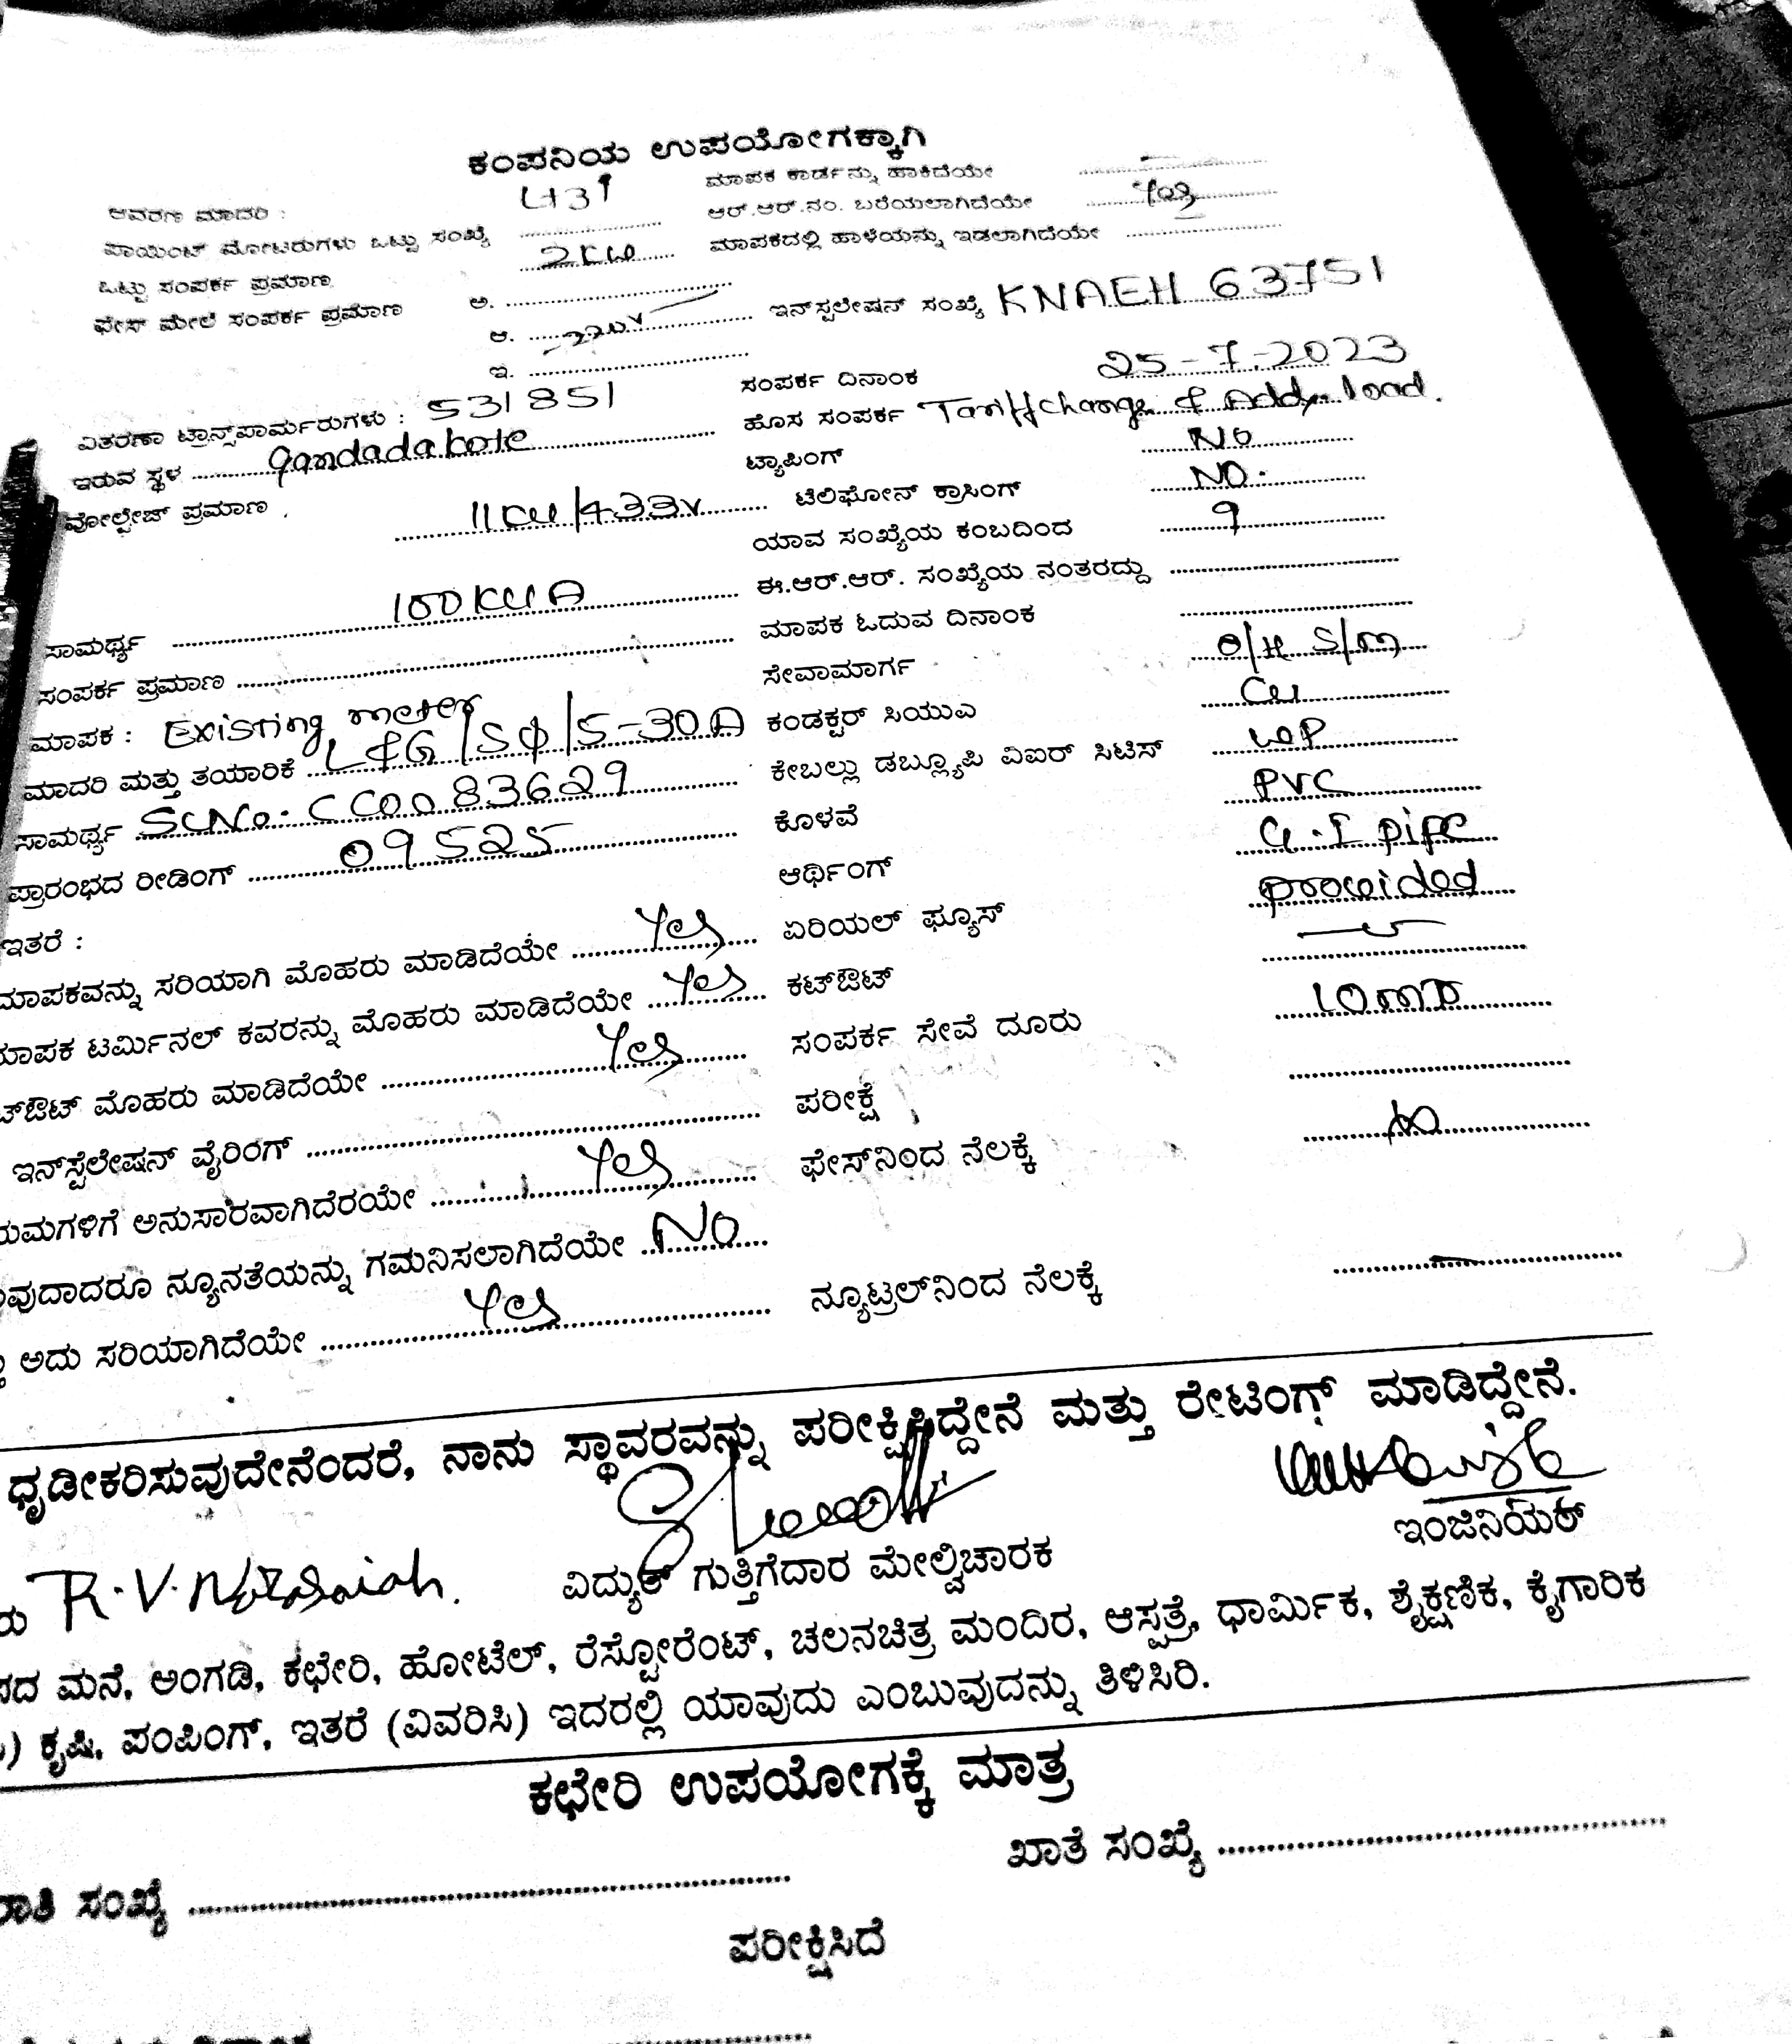 ಕಂಪನಿಯ ಉಪಯೋಗಕ್ಕಾಗಿ
ಆವರಣ ಮಾದರಿ : ಮಾಪಕ ಕಾರ್ಡನ್ನು ಹಾಕಿದೆಯೇ
ಪಾಯಿಂಟ್ ಮೋಟರುಗಳು ಒಟ್ಟು ಸಂಖ್ಯೆ ಆರ್.ಆರ್.ನಂ. ಬರೆಯಲಾಗಿದೆಯೇ Yes
ಒಟ್ಟು ಸಂಪರ್ಕ ಪ್ರಮಾಣ 2KW ಮಾಪಕದಲ್ಲಿ ಹಾಳೆಯನ್ನು ಇಡಲಾಗಿದೆಯೇ
ಫೇಸ್ ಮೇಲೆ ಸಂಪರ್ಕ ಪ್ರಮಾಣ ಅ.
ಆ. ಇನ್‌ಸ್ಪಲೇಷನ್ ಸಂಖ್ಯೆ KNAEH 63751
ಇ. ಸಂಪರ್ಕ ದಿನಾಂಕ 25-7-2023
ವಿತರಣಾ ಟ್ರಾನ್ಸ್‌ಪಾರ್ಮರುಗಳು : 531851 ಹೊಸ ಸಂಪರ್ಕ Tariff change & Addn load.
ಇರುವ ಸ್ಥಳ Gandadakote ಟ್ಯಾಪಿಂಗ್ No
ವೋಲ್ಟೇಜ್ ಪ್ರಮಾಣ 11KV/433V ಟೆಲಿಫೋನ್ ಕ್ರಾಸಿಂಗ್ NO.
ಯಾವ ಸಂಖ್ಯೆಯ ಕಂಬದಿಂದ 9
ಸಾಮರ್ಥ್ಯ 100KVA ಈ.ಆರ್.ಆರ್. ಸಂಖ್ಯೆಯ ನಂತರದ್ದು
ಸಂಪರ್ಕ ಪ್ರಮಾಣ ಮಾಪಕ ಓದುವ ದಿನಾಂಕ
ಮಾಪಕ : Existing meter ಸೇವಾಮಾರ್ಗ O/H S/m
ಮಾದರಿ ಮತ್ತು ತಯಾರಿಕೆ L&G/Sϕ/5-30A ಕಂಡಕ್ಟರ್ ಸಿಯುಎ Cu
ಸಾಮರ್ಥ್ಯ Sl.No. CC0083629 ಕೇಬಲ್ಲು ಡಬ್ಲ್ಯೂಪಿ ವಿಐರ್ ಸಿಟಿಸ್ WP
ಪ್ರಾರಂಭದ ರೀಡಿಂಗ್ 09525 ಕೊಳವೆ PVC
ಆರ್ಥಿಂಗ್ G.I pipe
ಇತರೆ : provided
ಮಾಪಕವನ್ನು ಸರಿಯಾಗಿ ಮೊಹರು ಮಾಡಿದೆಯೇ Yes ಏರಿಯಲ್ ಫ್ಯೂಸ್
ಮಾಪಕ ಟರ್ಮಿನಲ್ ಕವರನ್ನು ಮೊಹರು ಮಾಡಿದೆಯೇ Yes ಕಟ್‌ಔಟ್
ಟ್‌ಔಟ್ ಮೊಹರು ಮಾಡಿದೆಯೇ Yes ಸಂಪರ್ಕ ಸೇವೆ ದೂರು
ಇನ್‌ಸ್ಟೆಲೇಷನ್ ವೈರಿಂಗ್ ಪರೀಕ್ಷೆ
ಯಮಗಳಿಗೆ ಅನುಸಾರವಾಗಿದೆರಯೇ Yes ಫೇಸ್‌ನಿಂದ ನೆಲಕ್ಕೆ
ವುದಾದರೂ ನ್ಯೂನತೆಯನ್ನು ಗಮನಿಸಲಾಗಿದೆಯೇ No
ಅದು ಸರಿಯಾಗಿದೆಯೇ Yes ನ್ಯೂಟ್ರಲ್‌ನಿಂದ ನೆಲಕ್ಕೆ
ಧೃಡೀಕರಿಸುವುದೇನೆಂದರೆ, ನಾನು ಸ್ಥಾವರವನ್ನು ಪರೀಕ್ಷಿಸಿದ್ದೇನೆ ಮತ್ತು ರೇಟಿಂಗ್ ಮಾಡಿದ್ದೇನೆ.
ಇಂಜಿನಿಯರ್
ರು R.V. ವಿದ್ಯುತ್ ಗುತ್ತಿಗೆದಾರ ಮೇಲ್ವಿಚಾರಕ
ಪದ ಮನೆ, ಅಂಗಡಿ, ಕಛೇರಿ, ಹೋಟೆಲ್, ರೆಸ್ಟೋರೆಂಟ್, ಚಲನಚಿತ್ರ ಮಂದಿರ, ಆಸ್ಪತ್ರೆ, ಧಾರ್ಮಿಕ, ಶೈಕ್ಷಣಿಕ, ಕೈಗಾರಿಕ
) ಕೃಷಿ, ಪಂಪಿಂಗ್, ಇತರೆ (ವಿವರಿಸಿ) ಇದರಲ್ಲಿ ಯಾವುದು ಎಂಬುವುದನ್ನು ತಿಳಿಸಿರಿ.
ಕಛೇರಿ ಉಪಯೋಗಕ್ಕೆ ಮಾತ್ರ
ರಾತಿ ಸಂಖ್ಯೆ ಖಾತೆ ಸಂಖ್ಯೆ
ಪರೀಕ್ಷಿಸಿದೆ